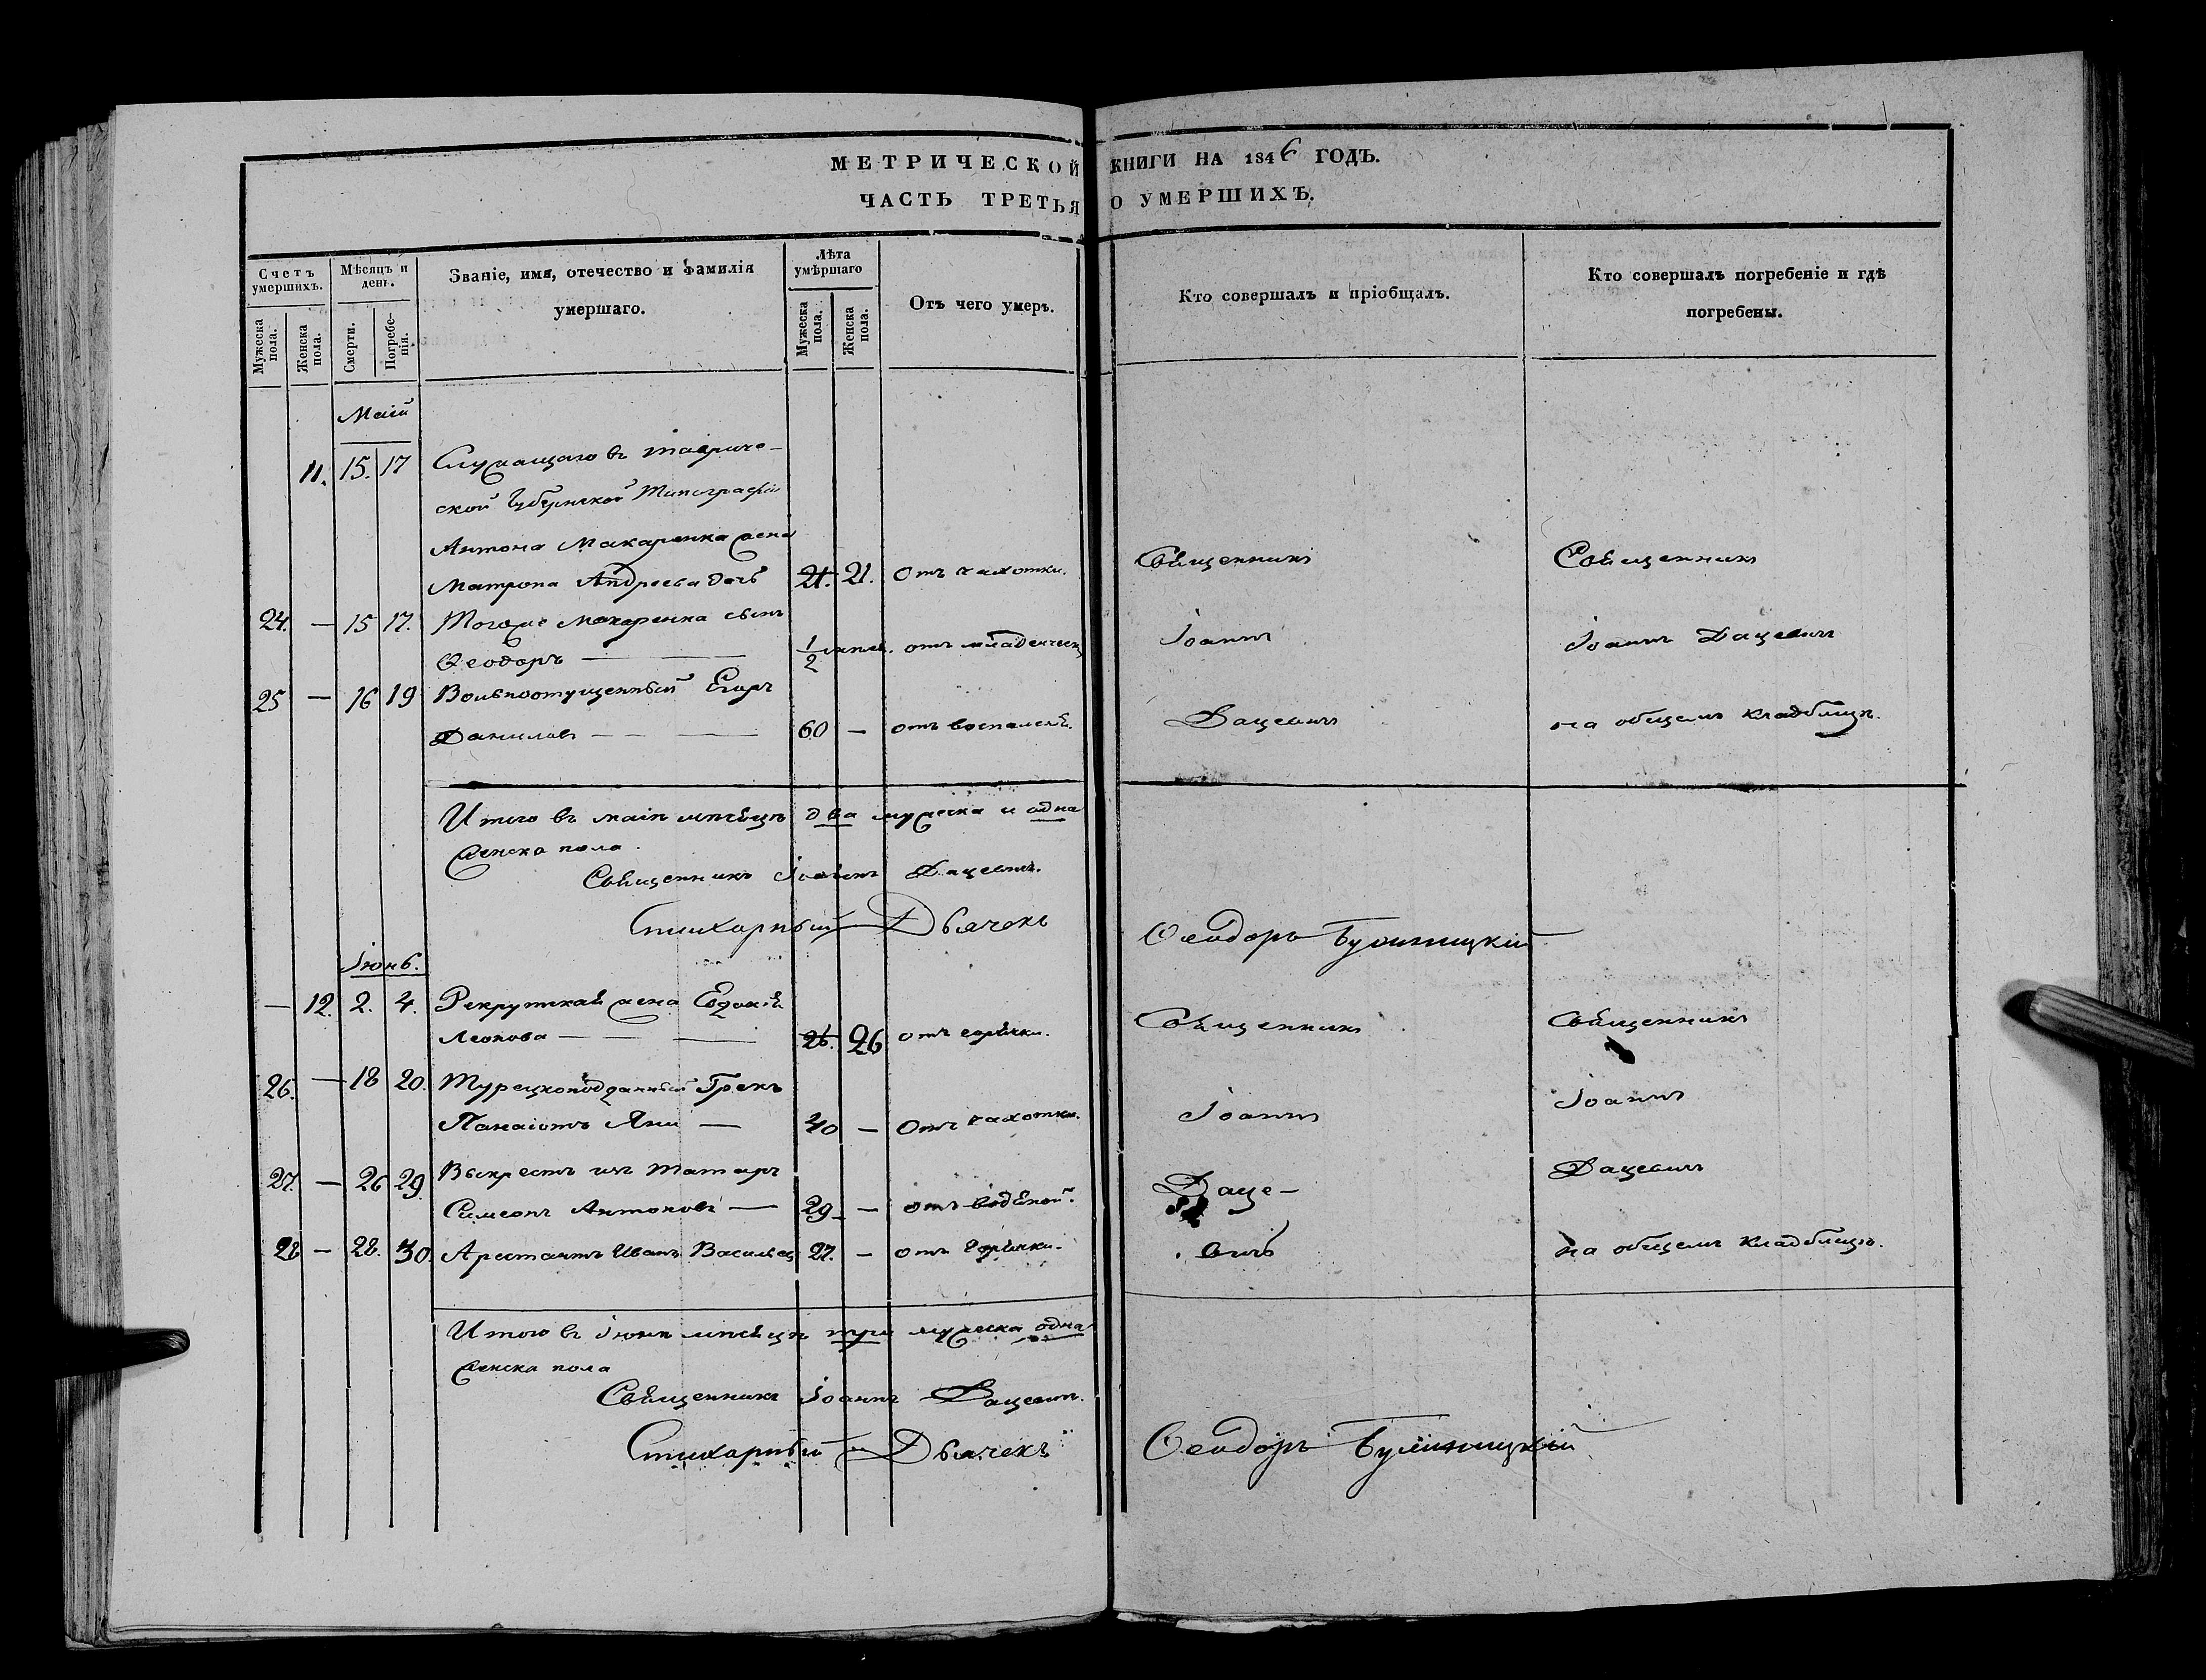 МЕТРИЧЕСКОЙ КНИГИ НА 1846 ГОДЪ.
ЧАСТЬ ТРЕТЬЯ О УМЕРШИХЪ.
Счетъ умершихъ.
Мужеска пола.
Женска пола.
Мѣсяцъ и день.
Смерти.
Погребенія.
Званіе, имя, отечество и фамилія
умершаго.
Лѣта умѣршаго
Мужеска пола.
Женска пола.
Отъ чего умеръ.
Кто совершалъ и пріобщалъ.
Кто совершалъ погребеніе и гдѣ
погребены.
Маій
11. 15. 17 Служащаго въ Тавриче-
ской Губернской Типографіи
Антона Макаренка жена
Матрона Андреева дочь 21. 21. Отъ чахотки. Священникъ Священникъ
24. — 15 17. Тогоже Макаренка сынъ
Ѳеодоръ — 1/2 отъ младенческ Іоаннъ Іоаннъ Дацевичъ
25 — 16 19 Вольноотпущенный Егоръ
Даниловъ — — — 60 — отъ воспаленія. Дацевичъ на общемъ кладбищѣ.
Итого въ маіѣ мѣсяцѣ два мужеска и одна
женска пола.
Священникъ Іоаннъ Дацевичъ.
Стихарный Дьячекъ Ѳеодоръ
Іюнь.
— 12. 2. 4. Рекрутская жена Евдокія
Леонова — — — 26. 26 отъ горячки. Священникъ Священникъ
26. — 18 20. Турецкоподданный Грекъ
Панаіотъ Яни — 40 — Отъ чахотки. Іоаннъ Іоаннъ
27. — 26 29. Выкрестъ изъ татаръ
Симеонъ Антоновъ — 29 — отъ водяной. Даце- Дацевичъ
28 — 28. 30. Арестантъ Иванъ Васильевъ 27. — отъ горячки. вичъ на общемъ кладбищѣ.
Итого въ Іюнѣ мѣсяцѣ три мужеска одна
женска пола
Священникъ Іоаннъ Дацевичъ.
Стихарный Дьячекъ Ѳеодоръ